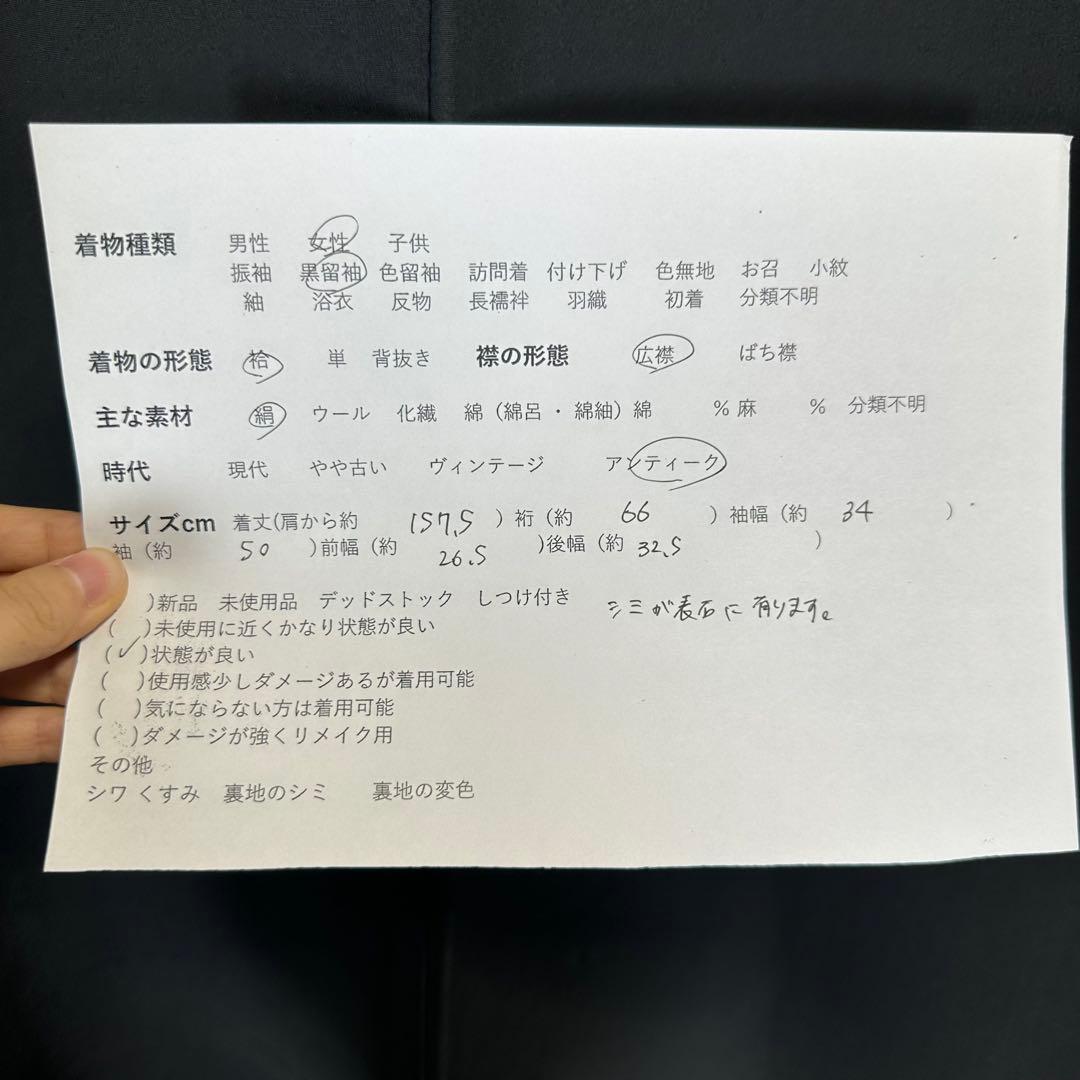 着物種類 男性 女性 子供
振袖 黒留袖 色留袖 訪問着 付け下げ 色無地 お召 小紋
紬 浴衣 反物 長襦袢 羽織 初着 分類不明
着物の形態 袷 単 背抜き 襟の形態 広襟 ばち襟
主な素材 絹 ウール 化繊 綿（綿呂・綿紬）綿 %麻 % 分類不明
時代 現代 やや古い ヴィンテージ アンティーク
サイズcm 着丈(肩から約 157.5 ) 裄（約 66 ）袖幅（約 34 ）
袖（約 50 )前幅（約 26.5 )後幅（約 32.5 ）
)新品 未使用品 デッドストック しつけ付き シミが表面に有ります。
( )未使用に近くかなり状態が良い
(✓)状態が良い
( )使用感少しダメージあるが着用可能
( )気にならない方は着用可能
( )ダメージが強くリメイク用
その他
シワ くすみ 裏地のシミ 裏地の変色